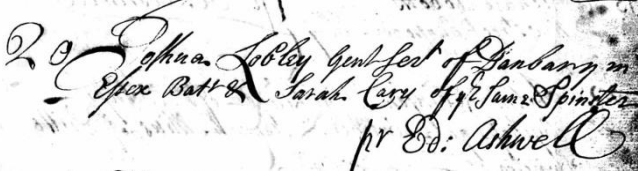 20 Joshua Lobley Gent Serv.t of Danbury in
Essex Batt.r & Sarah Cary of y.e Same Spinster
pr Ed: Ashwell